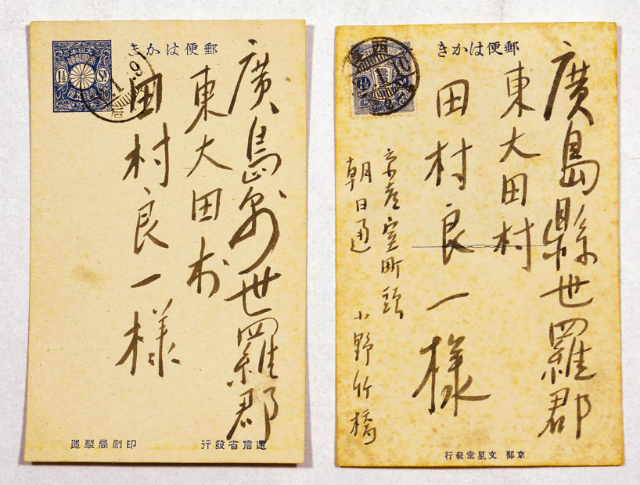 郵便はかき
廣島縣世羅郡
東大田村
田村良一様
逓信省發行
印刷局製造
郵便はかき
廣島縣世羅郡
東大田村
田村良一様
京都室町頭
朝日通
小野竹橋
京都 文星堂發行